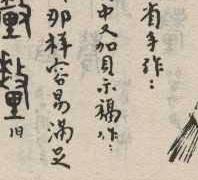 省手作：
中又加貝示福作：
那样容易满足
旧